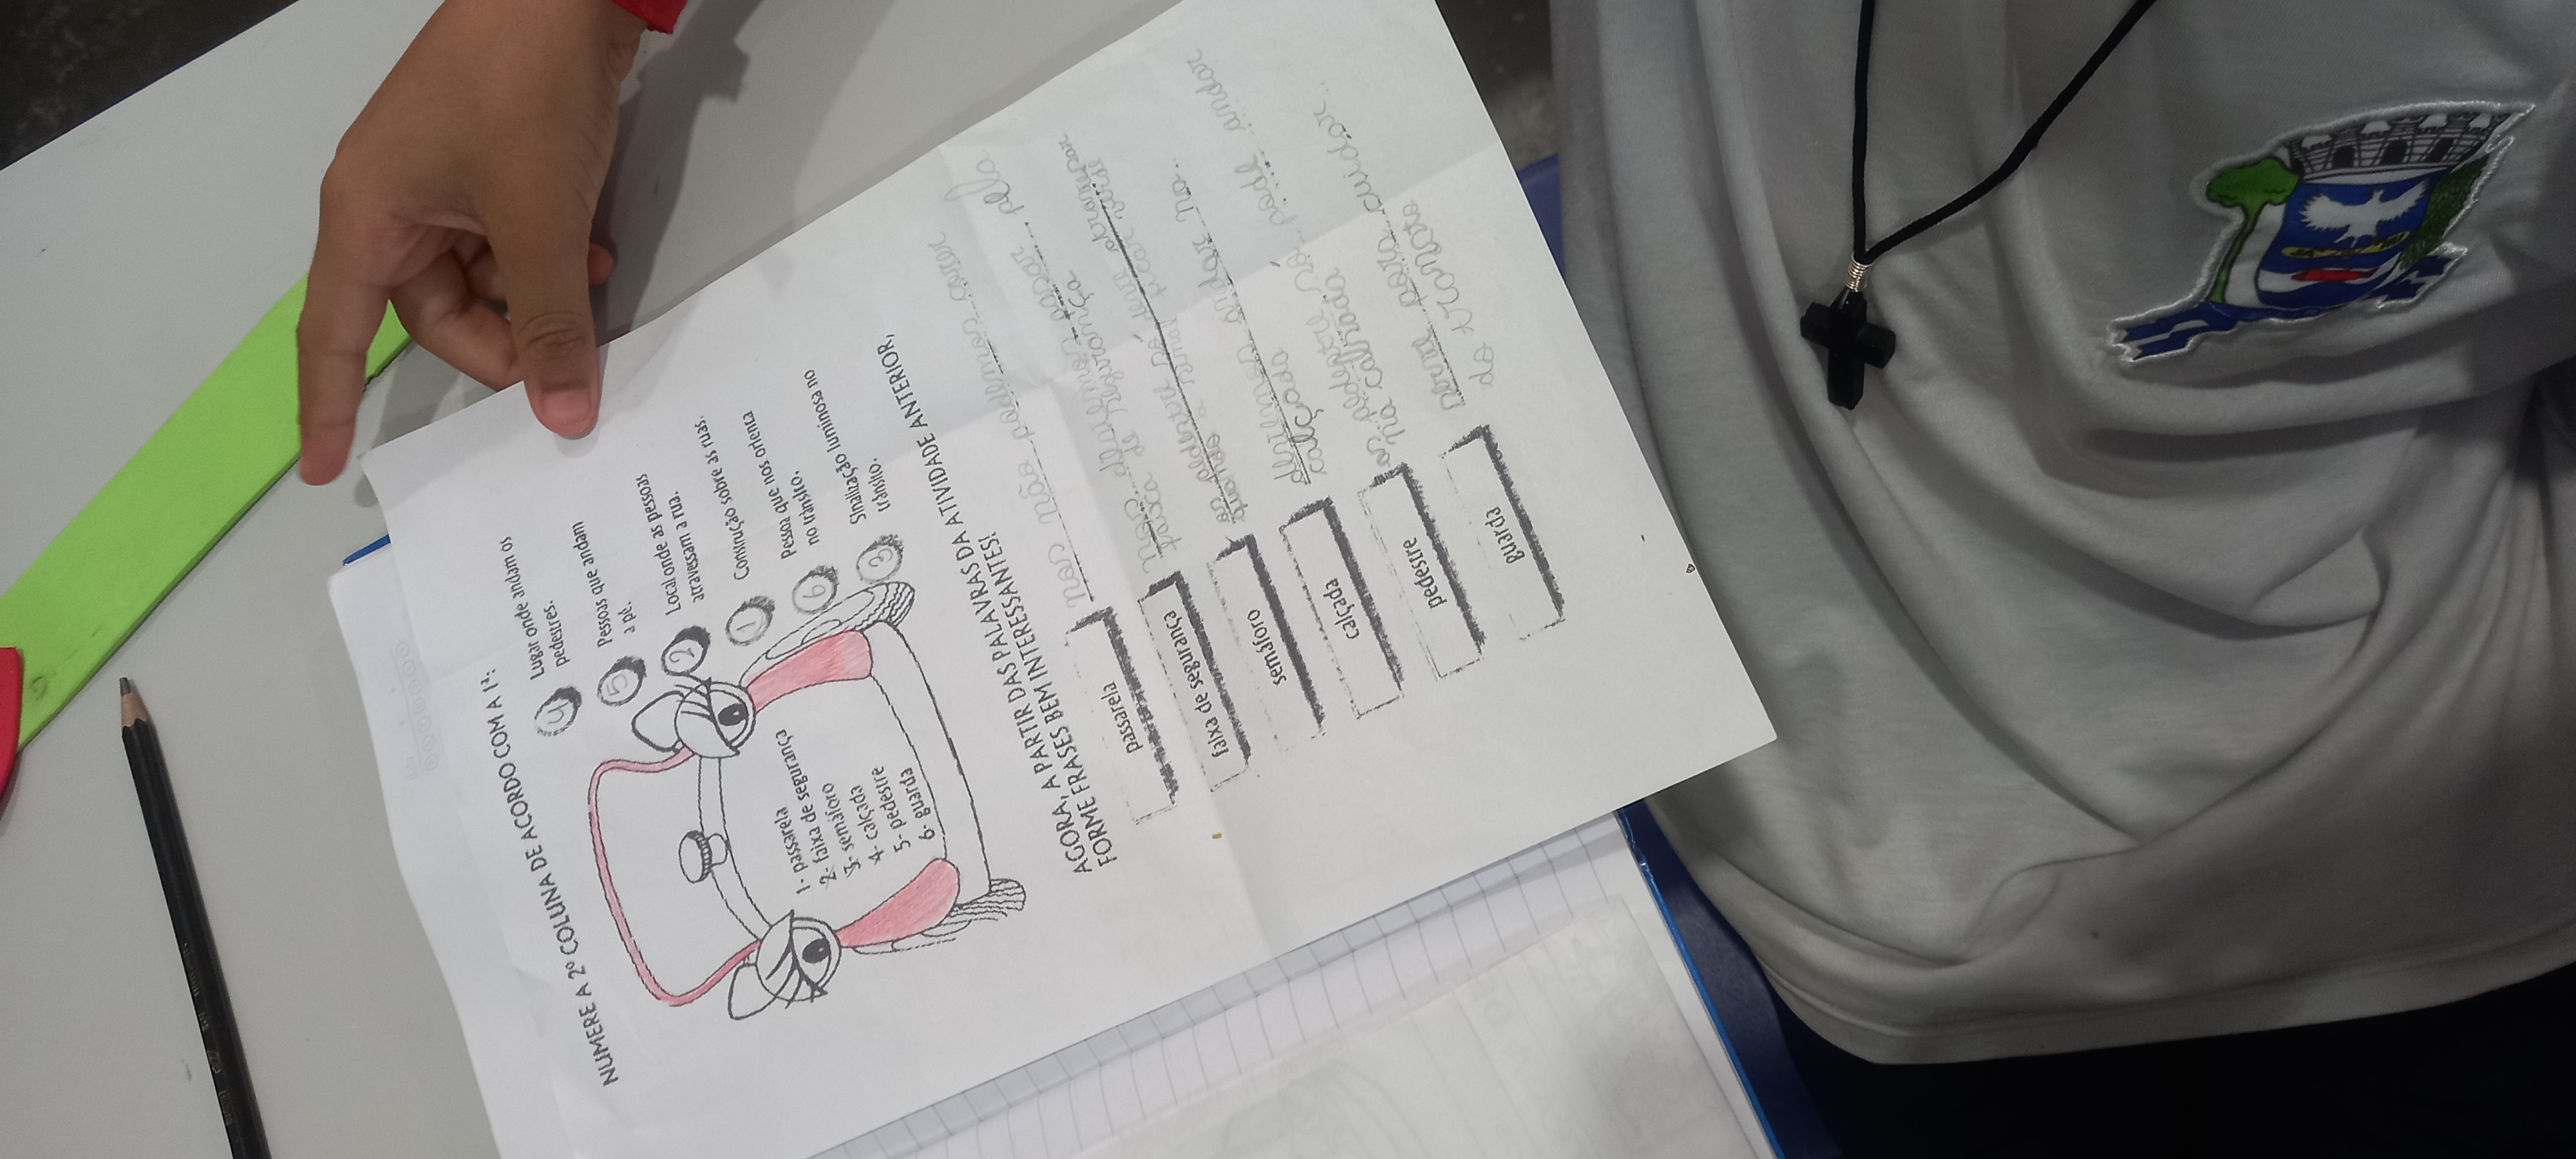 NUMERE A 2ª COLUNA DE ACORDO COM A 1ª:
1- passarela
2- faixa de segurança
3- semáforo
4- calçada
5- pedestre
6- guarda
4 Lugar onde andam os
pedestres.
5 Pessoas que andam
a pé.
2 Local onde as pessoas
atravessam a rua.
1 Construção sobre as ruas.
6 Pessoa que nos orienta
no trânsito.
3 Sinalização luminosa no
trânsito.
AGORA, A PARTIR DAS PALAVRAS DA ATIVIDADE ANTERIOR,
FORME FRASES BEM INTERESSANTES!
passarela nos não podemos correr
pela
faixa de segurança nos devemos parar
faixa de segurança
semáforo
quando o sinal ficar verde
calçada devemos andar na
calçada
pedestre pedestre só pode andar
na calçada
guarda serve para cuidar
do trânsito